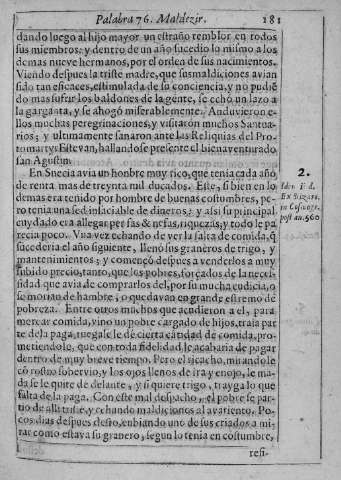 Palabra 76. Maldezir. 181
dando luego al hijo mayor un estraño temblor en todos
sus miembros: y dentro de un año sucedio lo mismo a los
demas nueve hermanos, por el orden de sus nacimientos.
Viendo despues la triste madre, que sus maldiciones avian
sido tan eficaces, estimulada de su conciencia, y no pudiẽ
do mas sufrir los baldones de la gente, se echò un lazo a
la garganta, y se ahogò miserablemente. Anduvieron e-
llos muchas peregrinaciones, y visitaron muchos Santua-
rios; y ultimamente sanaron ante las Reliquias del Pro-
tomartyr Estevan, hallandose presente el bienaventurado
san Agustin.
En Suecia avia un hõbre muy rico, que tenia cada año,
de renta mas de treynta mil ducados. Este, si bien en lo
demas era tenido por hombre de buenas costumbres, pe-
ro tenia una sed insaciable de dineros; y assi su principal
cuydado era allegar persas & nefas, riquezas; y todo le pa
recia poco. Una vez echando de ver la falta de comida, q̃
sucederia el año siguiente, llenò sus graneros de trigo, y
mantenimientos; y començò despues a venderlos a muy
subido precio, tanto, que los pobres, forçados de la necess
sidad que avia de comprarlos del, por su mucha cudicia, o
se morian de hambre, o quedavan en grande estremo de
pobreza. Entre otros muchos que acudieron a el, para
mercar comida, vino un pobre cargado de hijos, traia par
te dela paga, rogale le dè cierta cãtidad de comida, pro-
metiendole, que con toda fidelidad le acabaria de pagar
dentro de muy breve tiempo. Pero el ricacho, mirandole
cõ rostro sobervio, y los ojos llenos de ira y enojo, le man
da se le quite de delante, y si quiere trigo, trayga lo que
falta de la paga. Con este mal despacho, el pobre se par-
tio de alli triste, y echando maldiciones al avariento. Po-
cos dias despues desto, enbiando uno de sus criados a mi-
rar como estava su granero, segun lo tenia en costumbre,
resi-
2.
Ex Suzaro,
post an. 560